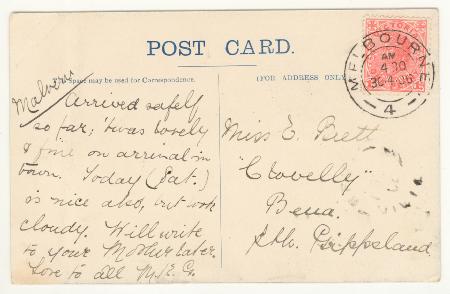 POST CARD.
Space may be used for Correspondence.
(FOR ADDRESS ONLY
VICTORIA
MELBOURNE
AM
4 30
30.4.06
4
Malvern
Arrived safely
so far; 'twas lovely
& fine on arrival in
town. Today (Sat.)
is nice also, but
cloudy. Will write
to your Mother later.
Love to all M.E.G.
Miss E. Brett
"Clovelly"
Bena.
Sth. Gippsland.